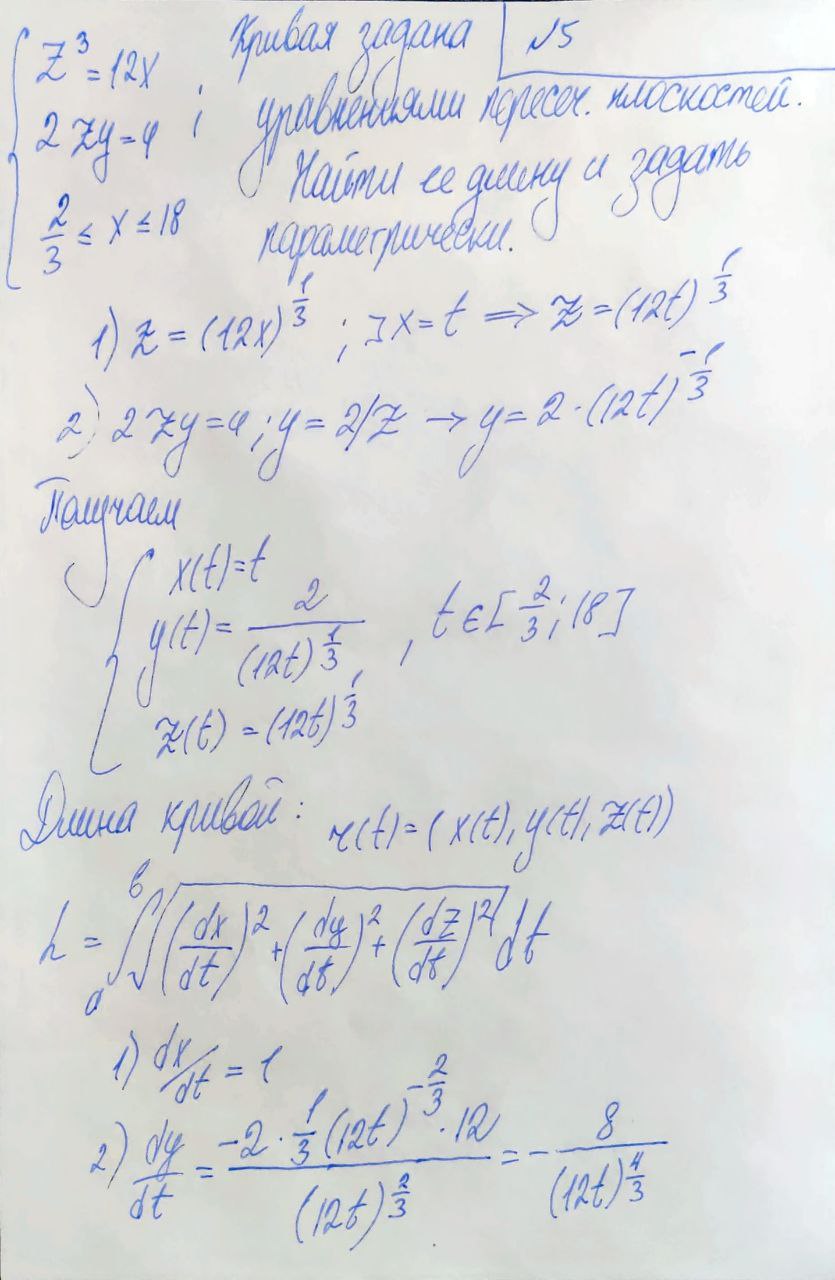 { z³ = 12x
2zy = 4 ;
2/3 ≤ x ≤ 18
Кривая задана
№5
уравнениями пересеч. плоскостей.
Найти ее длину и задать
параметрически.
1) z = (12x)^(1/3) ; ∃ x = t ⇒ z = (12t)^(1/3)
2) 2zy = 4 ; y = 2/z → y = 2·(12t)^(-1/3)
Получаем
{ x(t) = t
y(t) = 2/(12t)^(1/3) , t ∈ [2/3; 18]
z(t) = (12t)^(1/3)
Длина кривой: r(t) = (x(t), y(t), z(t))
L = ∫_a^b √((dx/dt)² + (dy/dt)² + (dz/dt)²) dt
1) dx/dt = 1
2) dy/dt = (-2 · 1/3 (12t)^(-2/3) · 12)/(12t)^(2/3) = - 8/(12t)^(4/3)